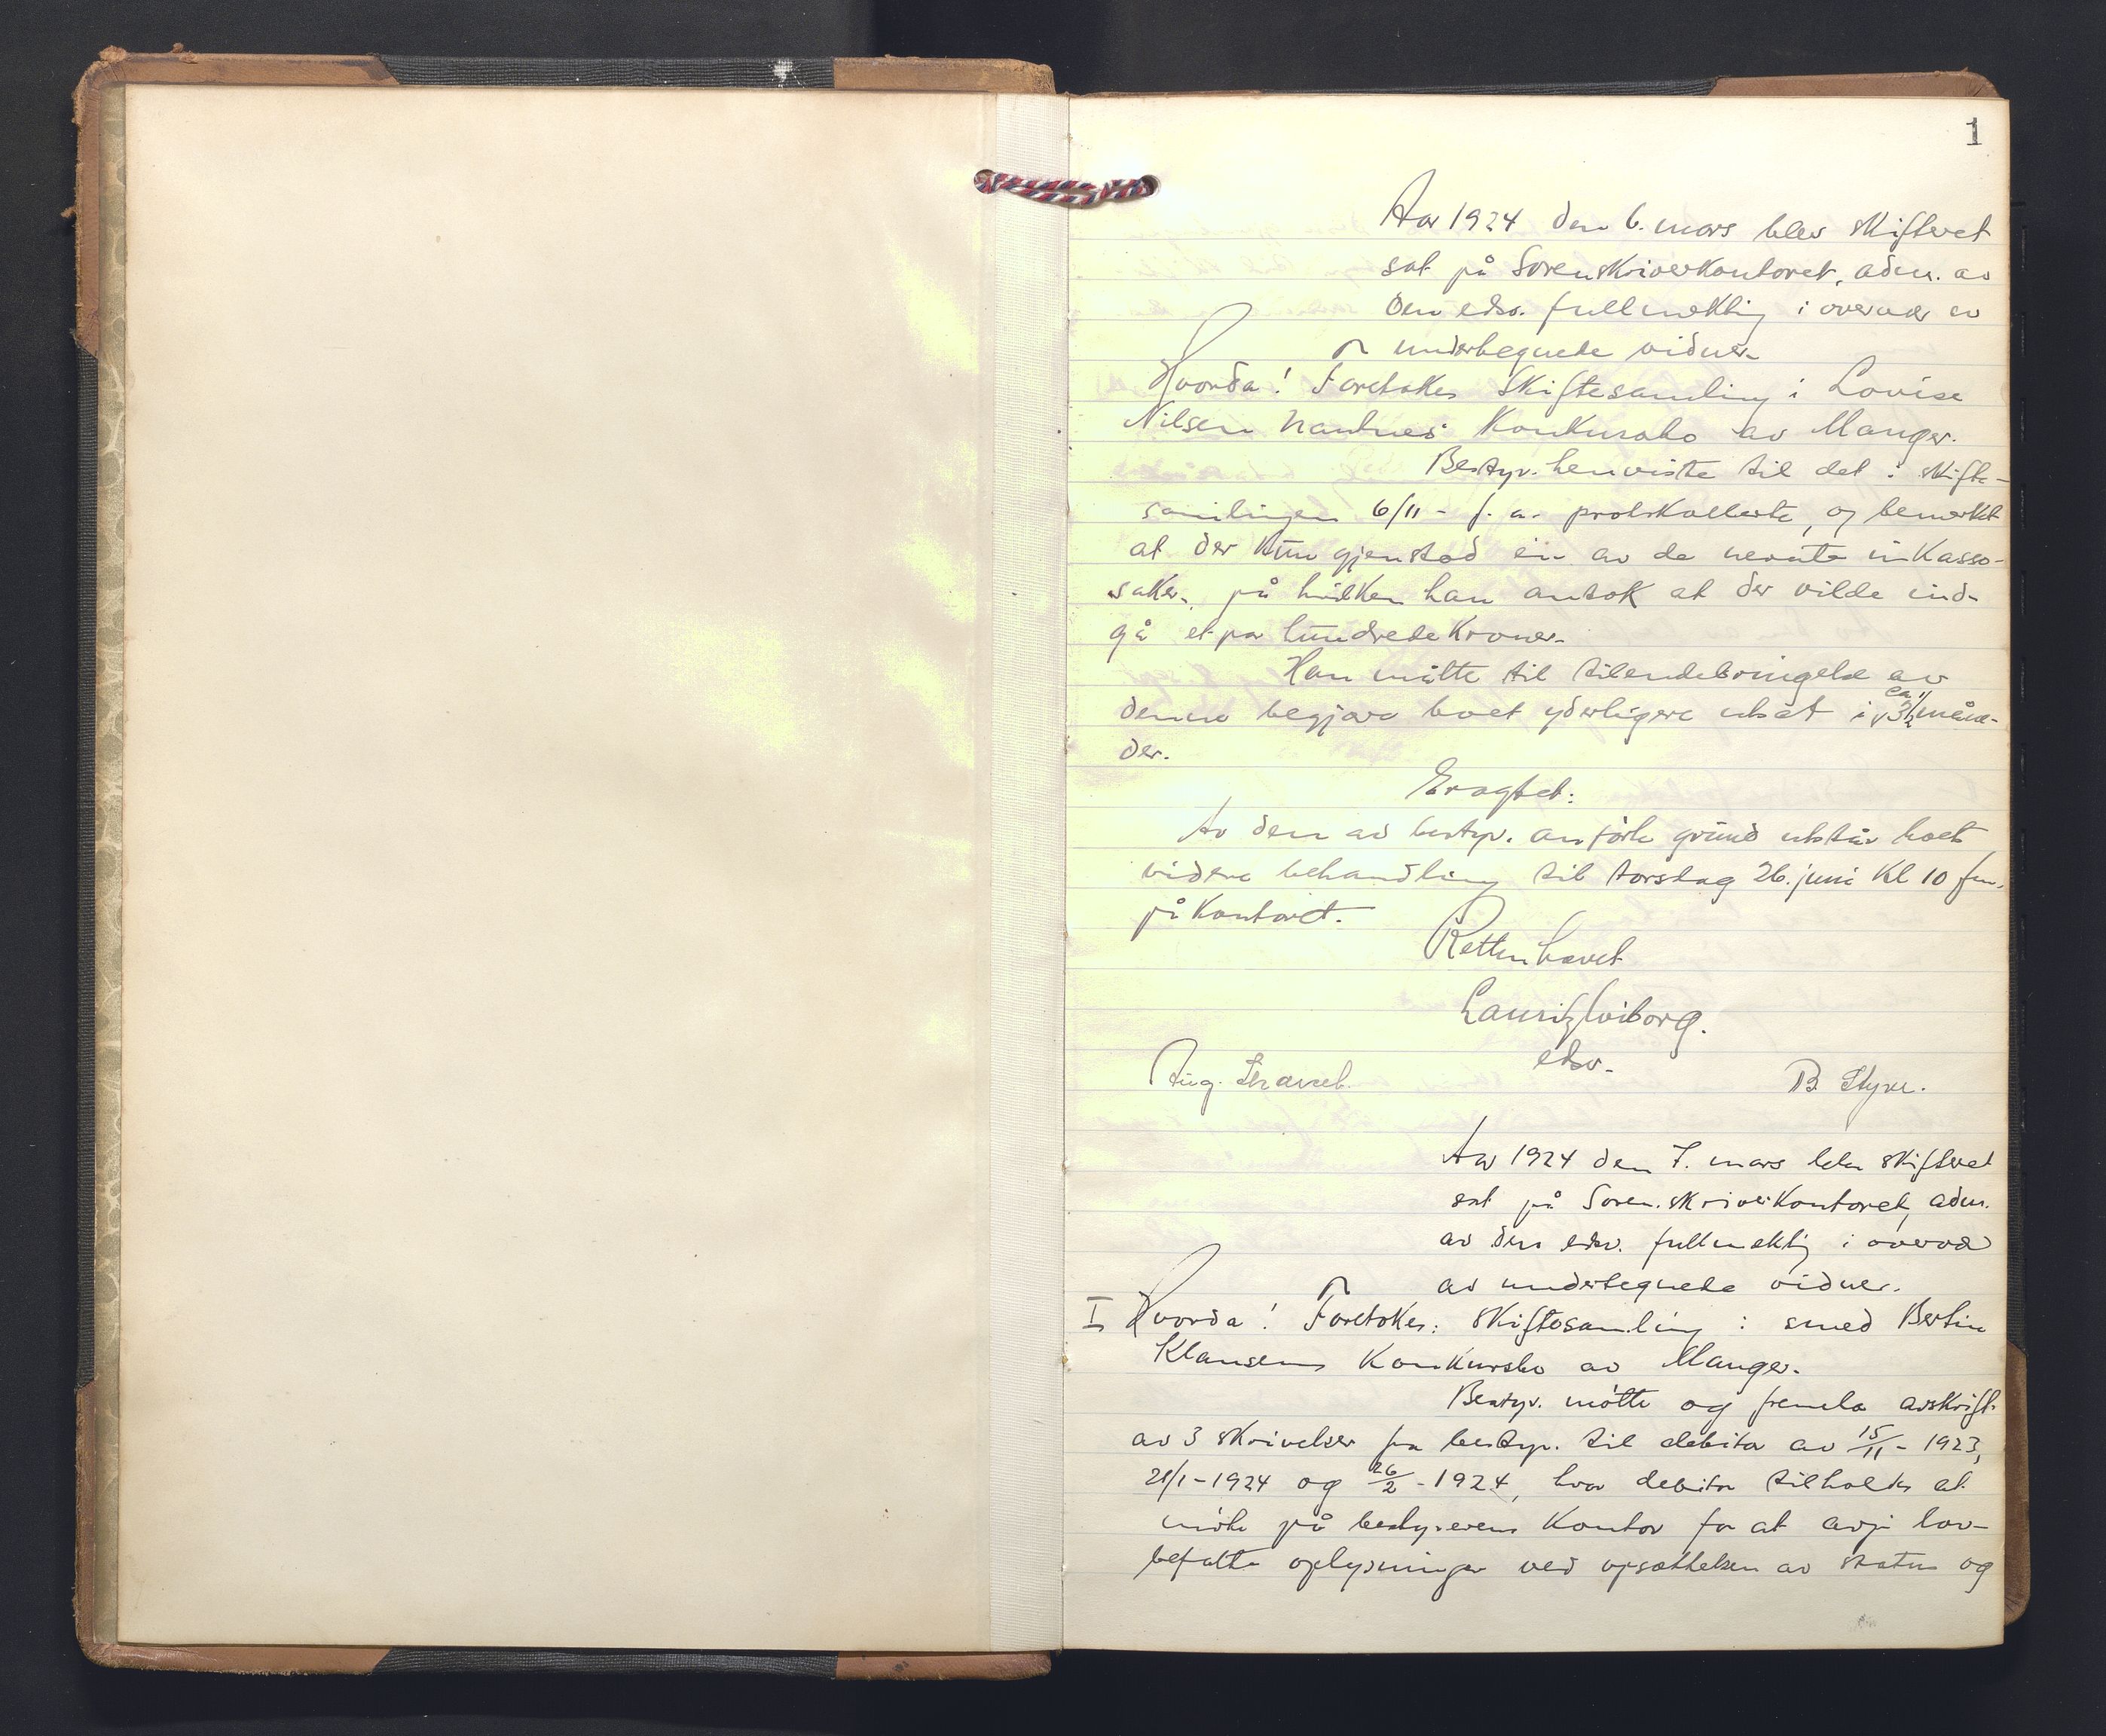 1
Aar 1924 den 6. mars blev skifteret
sat på Sorenskriverkontoret, adm. av
den edsv. fullmektig i overvær av
undertegnede vidner.
Hvorda! Foretokes skiftesamling i Lovise
Nilsen konkursbo av Manger.
Bestyr. henviste til det i skifte-
samlingen 6/11 - f. a. protokollerte, og bemerket
at der kun gjenstod én av de nevnte inkasso-
saker, på hvilken han antok at der vilde ind-
gå et par hundrede kroner.
Han måtte til tilendebringelse av
denne begjære boet yderligere utsat i ca 3 1/2 måne-
der.
Eragtet:
Av den av bestyr. anførte grund utstår boet
videre behandling til torsdag 26. juni kl 10 fm.
på kontoret.
Retten hævet
Lauritz Wiborg.
edsv.
Aug. B. Styve.
Aar 1924 den 7. mars blev skifteret
sat på Sorenskriverkontoret, adm.
av den edsv. fullmektig i overvær
av undertegnede vidner.
I Hvorda! Foretokes: Skiftesamling i smed Bertin
Klausens konkursbo av Manger.
Bestyr. møtte og fremla avskrift
av 3 skrivelser fra bestyr. til debitor av 15/11 - 1923,
21/1 - 1924 og 26/2 - 1924, hvor debitor tilholdes at
møte på bestyrerens kontor for at avgi lov-
befalte oplysninger ved opsættelsen av status og